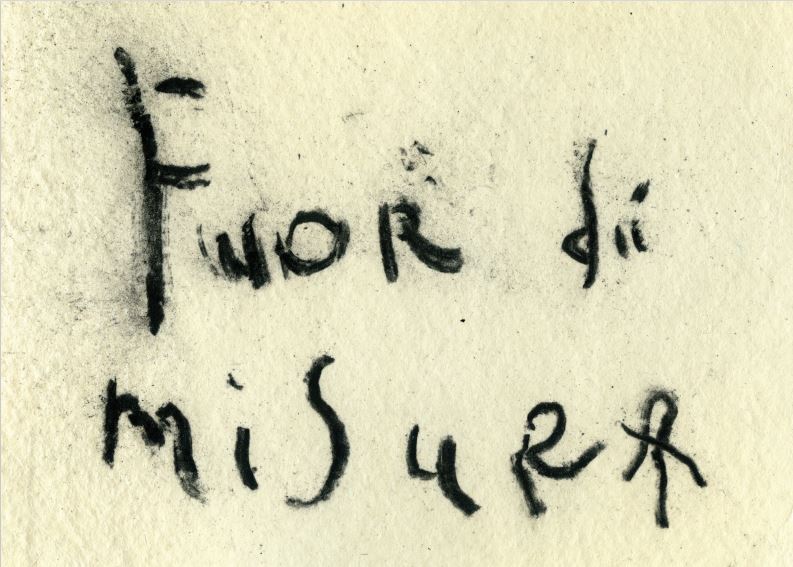 Fuor di
miSuRA